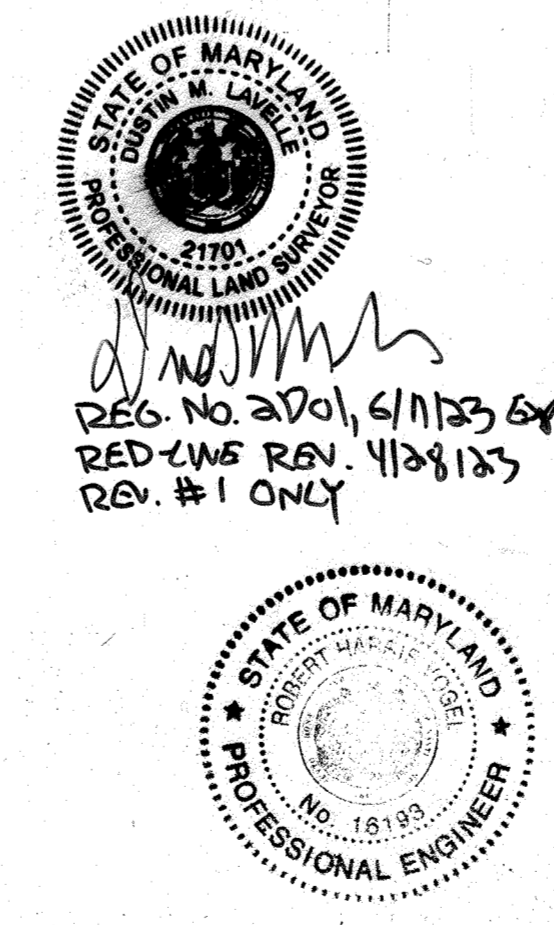 STATE OF MARYLAND
DUSTIN M. LAVELLE
21701
PROFESSIONAL LAND SURVEYOR
REG. NO. 21701, 6/17/23 Exp
RED-LINE REV. 4/28/23
REV. #1 ONLY
STATE OF MARYLAND
ROBERT HARRIS VOGEL
No. 16193
PROFESSIONAL ENGINEER